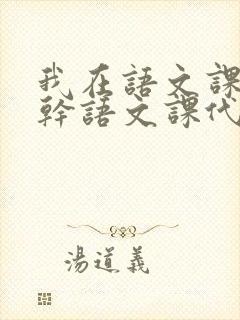 我在語文課
幹語文課代
湯道義